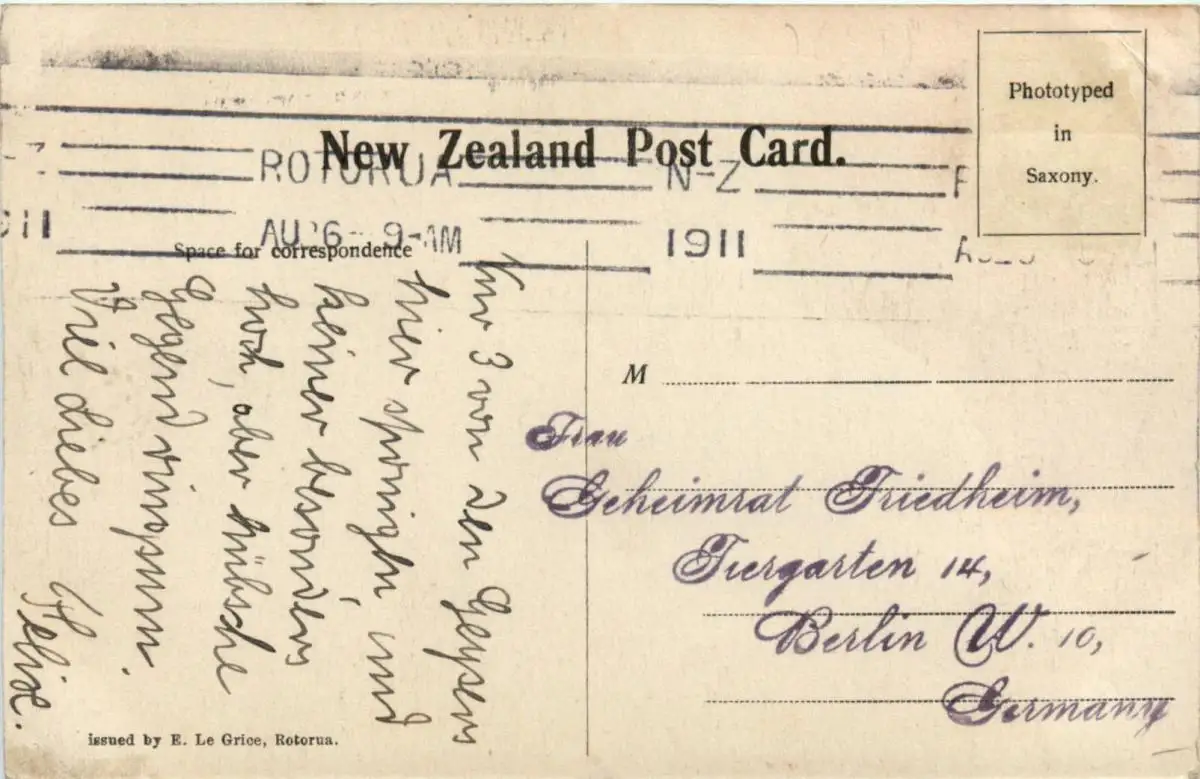 New Zealand Post Card.
Phototyped
in
Saxony.
ROTORUA N-Z
1911 AU 6 9-AM 1911
Space for correspondence
Nur 3 von den Geysers
hier springen und
keiner besonders
hoch, aber hübsche
Gegend ringsum.
Viel Liebes
Felix.
M
Frau
Geheimrat Friedheim,
Tiergarten 14,
Berlin W. 10,
Germany
issued by E. Le Grice, Rotorua.